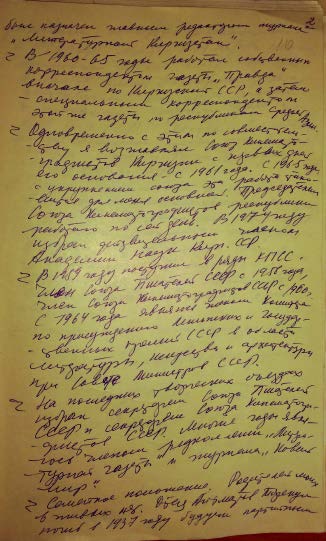 2
был назначен главным редактором журнала
"Литературный Киргизстан".
В 1960-65 годы работал собственным
корреспондентом газеты "Правда"
вначале по Киргизской ССР, а затем
- специальным корреспондентом
этой же газеты по республикам Средней Азии.
Одновременно с этим по совместитель-
ству я возглавлял Союз Кинемато-
графистов Киргизии с первых дней
его основания - с 1961 года. С 1965 года
с укрупнением союза эта работа
для меня основная. Председателем
Союза Кинематографистов республики
работаю по сей день. В 1974 году
избран действительным членом
Академии Наук Кирг. ССР.
В 1959 году вступил в ряды КПСС.
Член Союза Писателей СССР с 1956 года,
член Союза Кинематографистов СССР с
С 1964 года являюсь членом Комитета
по присуждению Ленинских и Государ-
ственных премий СССР в области
литературы, искусства и архитектуры
при Совете Министров СССР.
На последних творческих съездах
избран секретарем Союза Писателей
СССР и секретарем Союза Кинематогра-
фистов СССР. Многие годы явля-
юсь членом редколлегии "Литера-
турной газеты" и журнала "Новый
мир".
Семейное положение. Родителей моих
в живых нет. Отец Айтматов Торекул
погиб в 1937 году будучи партийным